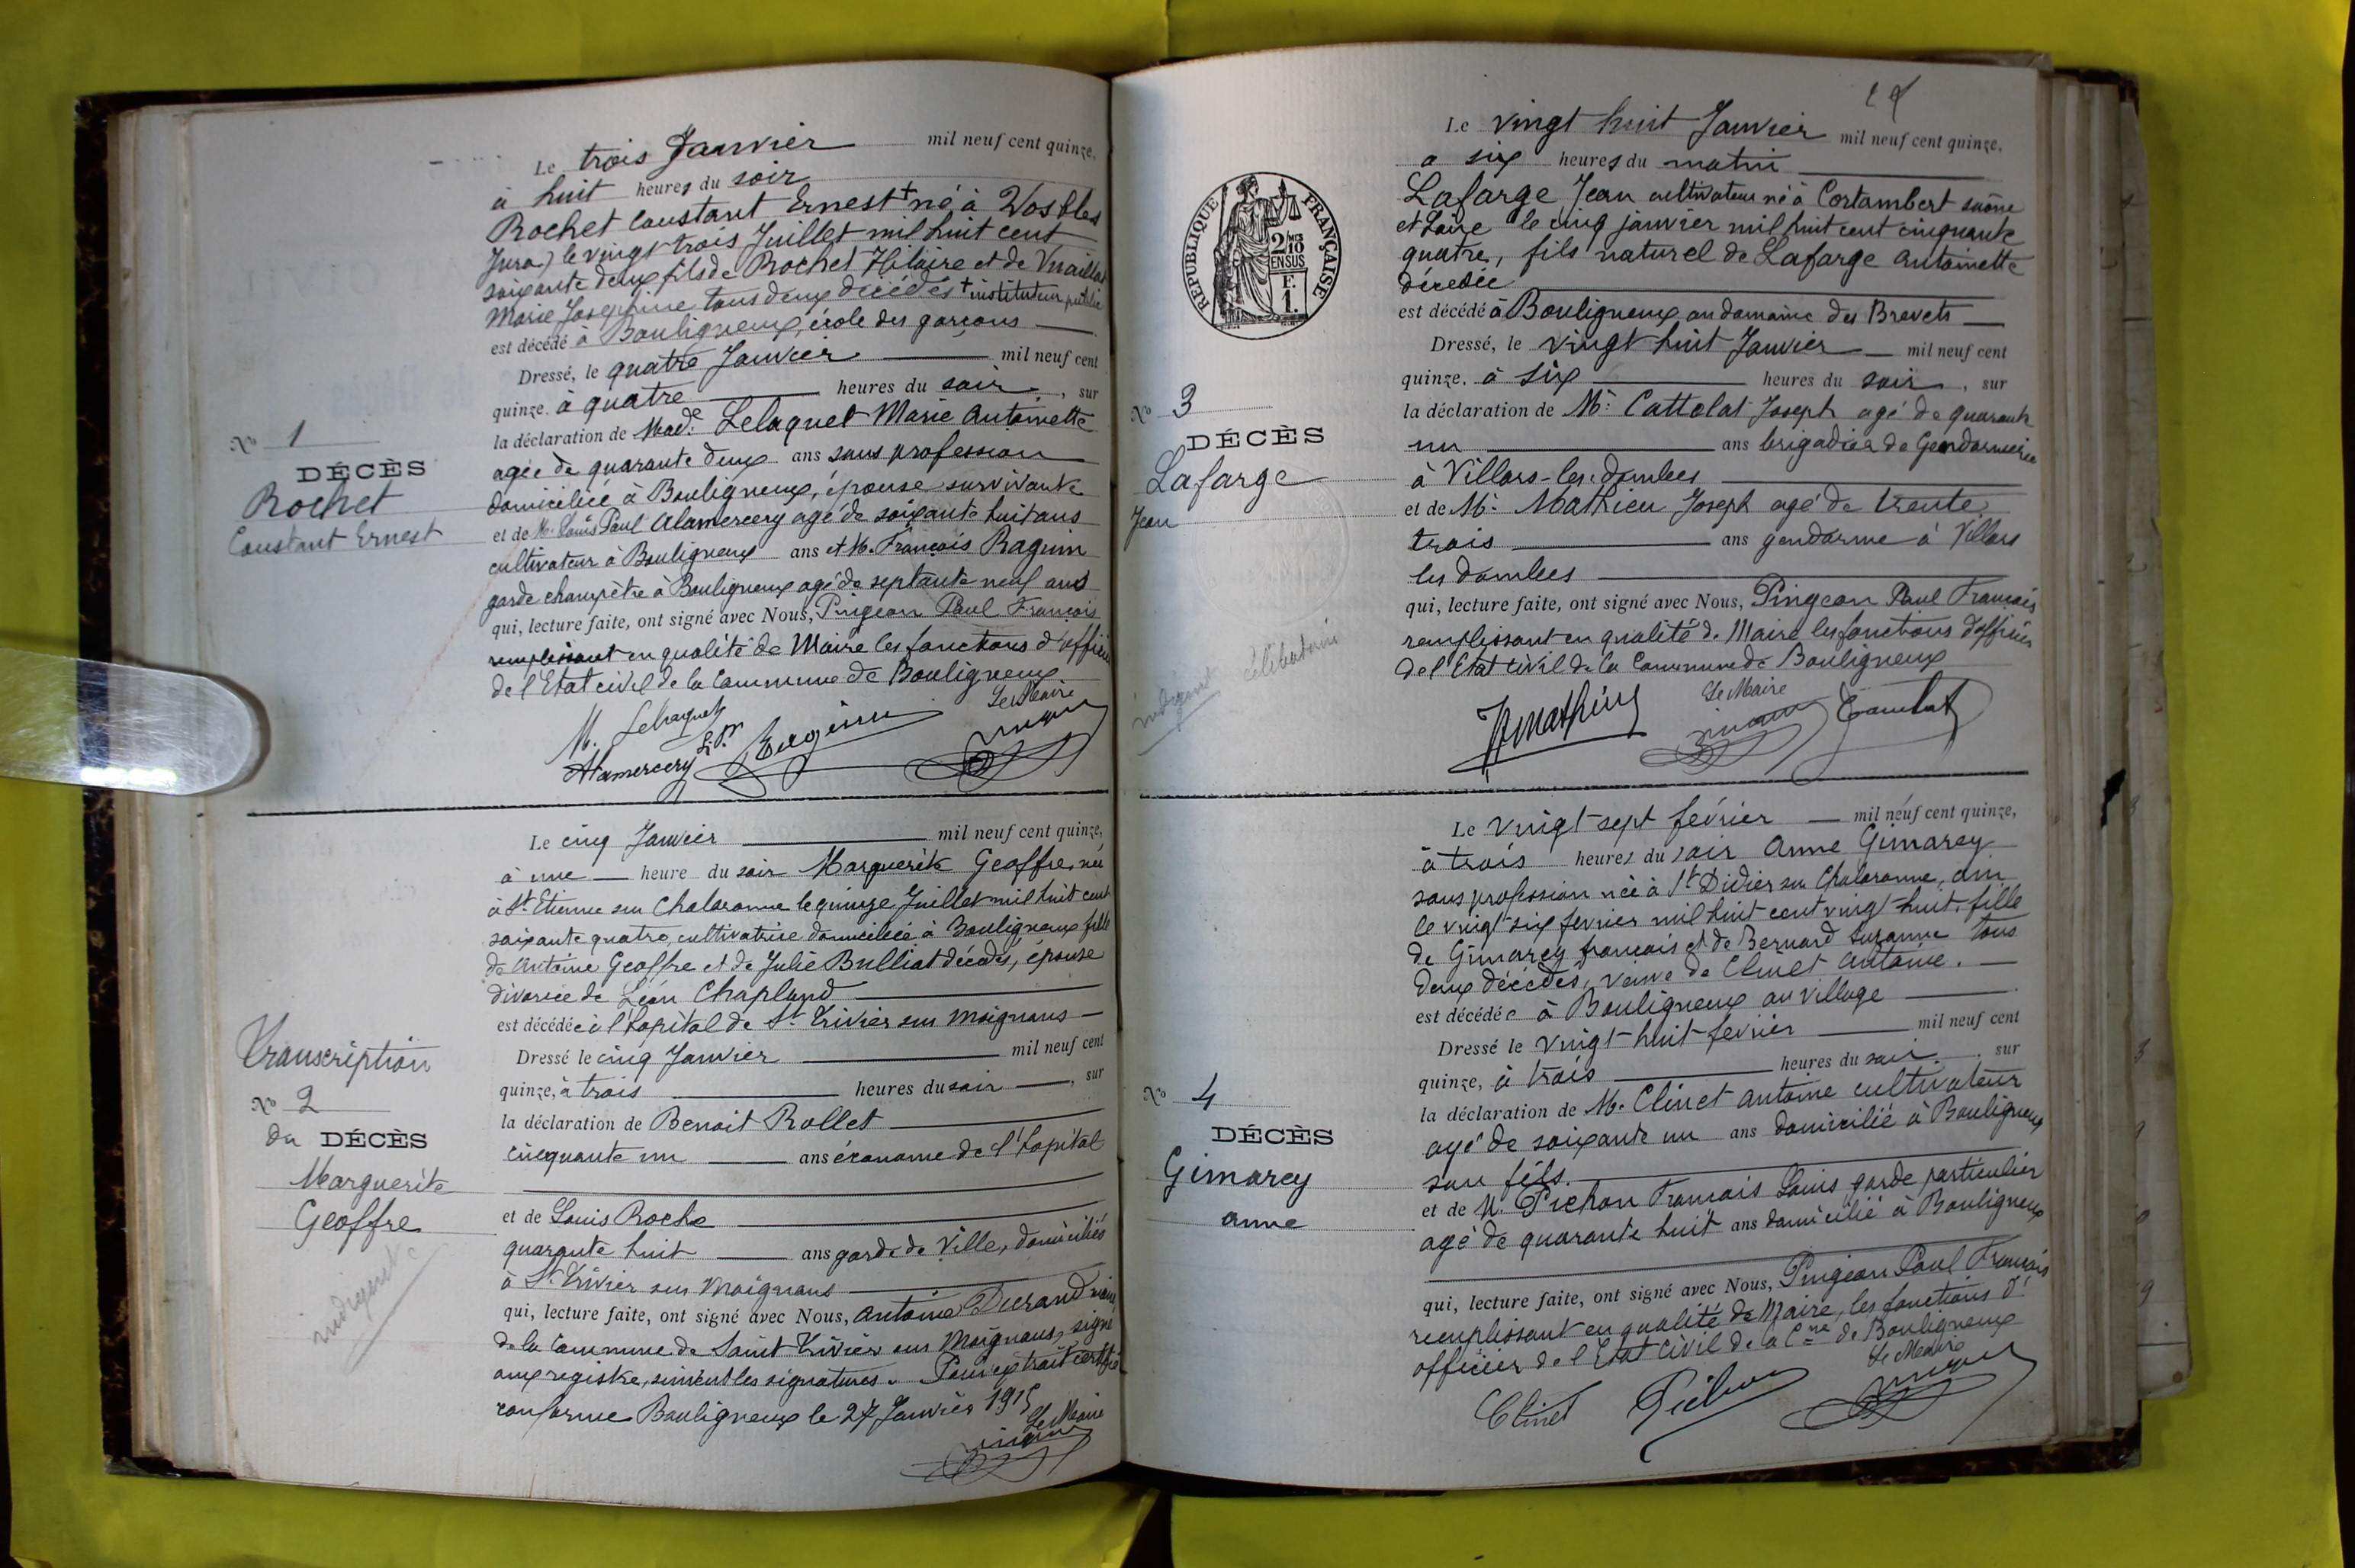 Le trois Janvier mil neuf cent quinze,
à huit heures du soir
Rochet Constant Ernest + né à Vosbles
Jura) le vingt trois Juillet mil huit cent
soixante deux fils de Rochet Hilaire et de
Marie Josephine tous deux décédés + instituteur public
est décédé à Bouligneux, école des garçons
Dressé, le quatre Janvier mil neuf cent
quinze. à quatre heures du soir, sur
la déclaration de Made Lelaquet Marie Antoinette
agée de quarante deux ans sans profession
domiciliée à Bouligneux, épouse survivante
et de M. Louis Paul Alamercery agé de soixante huit ans
cultivateur à Bouligneux ans et M. François Raguin
garde champêtre à Bouligneux agé de septante neuf ans
qui, lecture faite, ont signé avec Nous, Pingeon Paul François
remplissant en qualité de Maire les fonctions d'officier
de l'Etat civil de la Commune de Bouligneux
Le Maire
M. Lelaquet
Alamercery L.P.
Raguin
No 1
DÉCÈS
Rochet
Constant Ernest
Le cinq Janvier mil neuf cent quinze,
à une heure du soir Marguerite Geoffre, née
à St. Etienne sur Chalaronne le quinze Juillet mil huit cent
soixante quatre, cultivatrice domiciliée à Bouligneux fille
de Antoine Geoffre et de Julie Bulliat décédés, épouse
divorcée de Léon Chapland
est décédée à l'hopital de St. Trivier sur Moignans
Dressé le cinq Janvier mil neuf cent
quinze, à trois heures du soir, sur
la déclaration de Benoit Rollet
cinquante un ans économe de l'hopital
et de Louis Roche
quarante huit ans garde de Ville, domiciliés
à St. Trivier sur Moignans
qui, lecture faite, ont signé avec Nous, Antoine Durand maire
de la Commune de Saint Trivier sur Moignans, signé
aux registre, suivent les signatures. Pour extrait certifié
conforme Bouligneux le 27 Janvier 1915
Le Maire
Transcription
No 2
du DÉCÈS
Marguerite
Geoffre
indigente
Le vingt huit Janvier mil neuf cent quinze,
a six heures du matin
Lafarge Jean cultivateur né à Cortambert saône
et Loire le cinq janvier mil huit cent cinquante
quatre, fils naturel de Lafarge Antoinette
décédée
est décédé à Bouligneux au domaine des Brevets
Dressé, le vingt huit Janvier mil neuf cent
quinze. à six heures du soir, sur
la déclaration de Mr. Cattelat Joseph agé de quarante
un ans brigadier de Gendarmerie
à Villars-les-dombes
et de Mr. Mathieu Joseph agé de trente
trois ans gendarme à Villars
les dombes
qui, lecture faite, ont signé avec Nous, Pingeon Paul François
remplissant en qualité de Maire les fonctions d'officier
de l'Etat civil de la Commune de Bouligneux
Le Maire
RÉPUBLIQUE FRANÇAISE
2/10 EN SUS
F. 1.
No 3
DÉCÈS
Lafarge
Jean
indigent célibataire
Le vingt sept février mil neuf cent quinze,
à trois heures du soir Anne Gimarey
sans profession née à St Didier sur Chalaronne, ain
le vingt six fevrier mil huit cent vingt huit, fille
de Gimarey françois et de Bernard Suzanne tous
deux décédés, veuve de Clinet Antoine.
est décédée à Bouligneux au village
Dressé le vingt huit fevrier mil neuf cent
quinze, à trois heures du soir, sur
la déclaration de M. Clinet Antoine cultivateur
agé de soixante un ans domicilié à Bouligneux
son fils.
et de M. Pichon François Louis garde particulier
agé de quarante huit ans domicilié à Bouligneux
qui, lecture faite, ont signé avec Nous, Pingeon Paul François
remplissant en qualité de Maire, les fonctions d'
officier de l'Etat Civil de la Cne de Bouligneux
Le Maire
Clinet Pichon
No 4
DÉCÈS
Gimarey
Anne